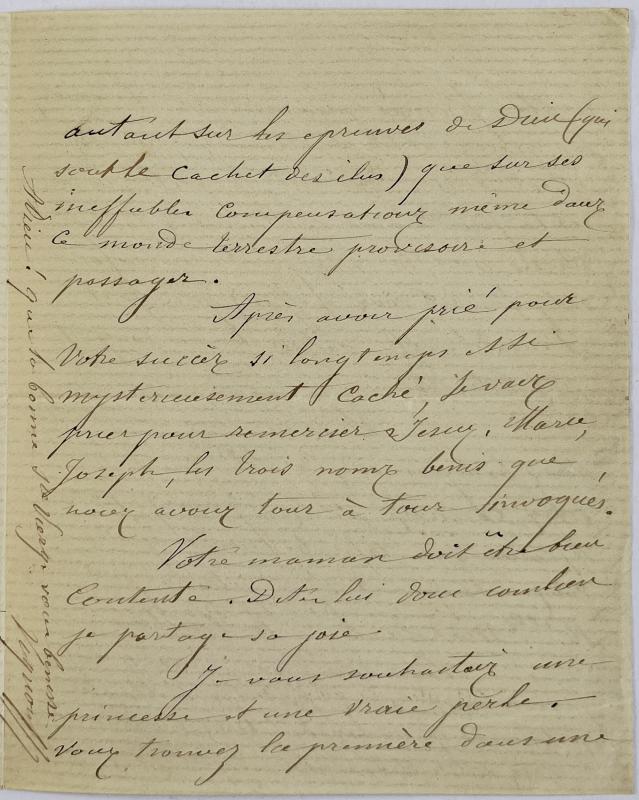 autant sur les epreuves de Dieu (qui
sont le cachet des élus) que sur ses
ineffables compensations même dans
ce monde terrestre provisoire et
passager.
Après avoir prié pour
votre succès si longtemps et si
mysterieusement caché, je vais
prier pour remercier Jesus, Marie,
Joseph, les trois noms benis que
nous avons tour à tour invoqués.
Votre maman doit être bien
contente. Dites lui donc combien
je partage sa joie
Je vous souhaitais une
princesse et une vraie perle.
Vous trouvez la première dans une
Adieu! que la bonne Ste Vierge vous benisse